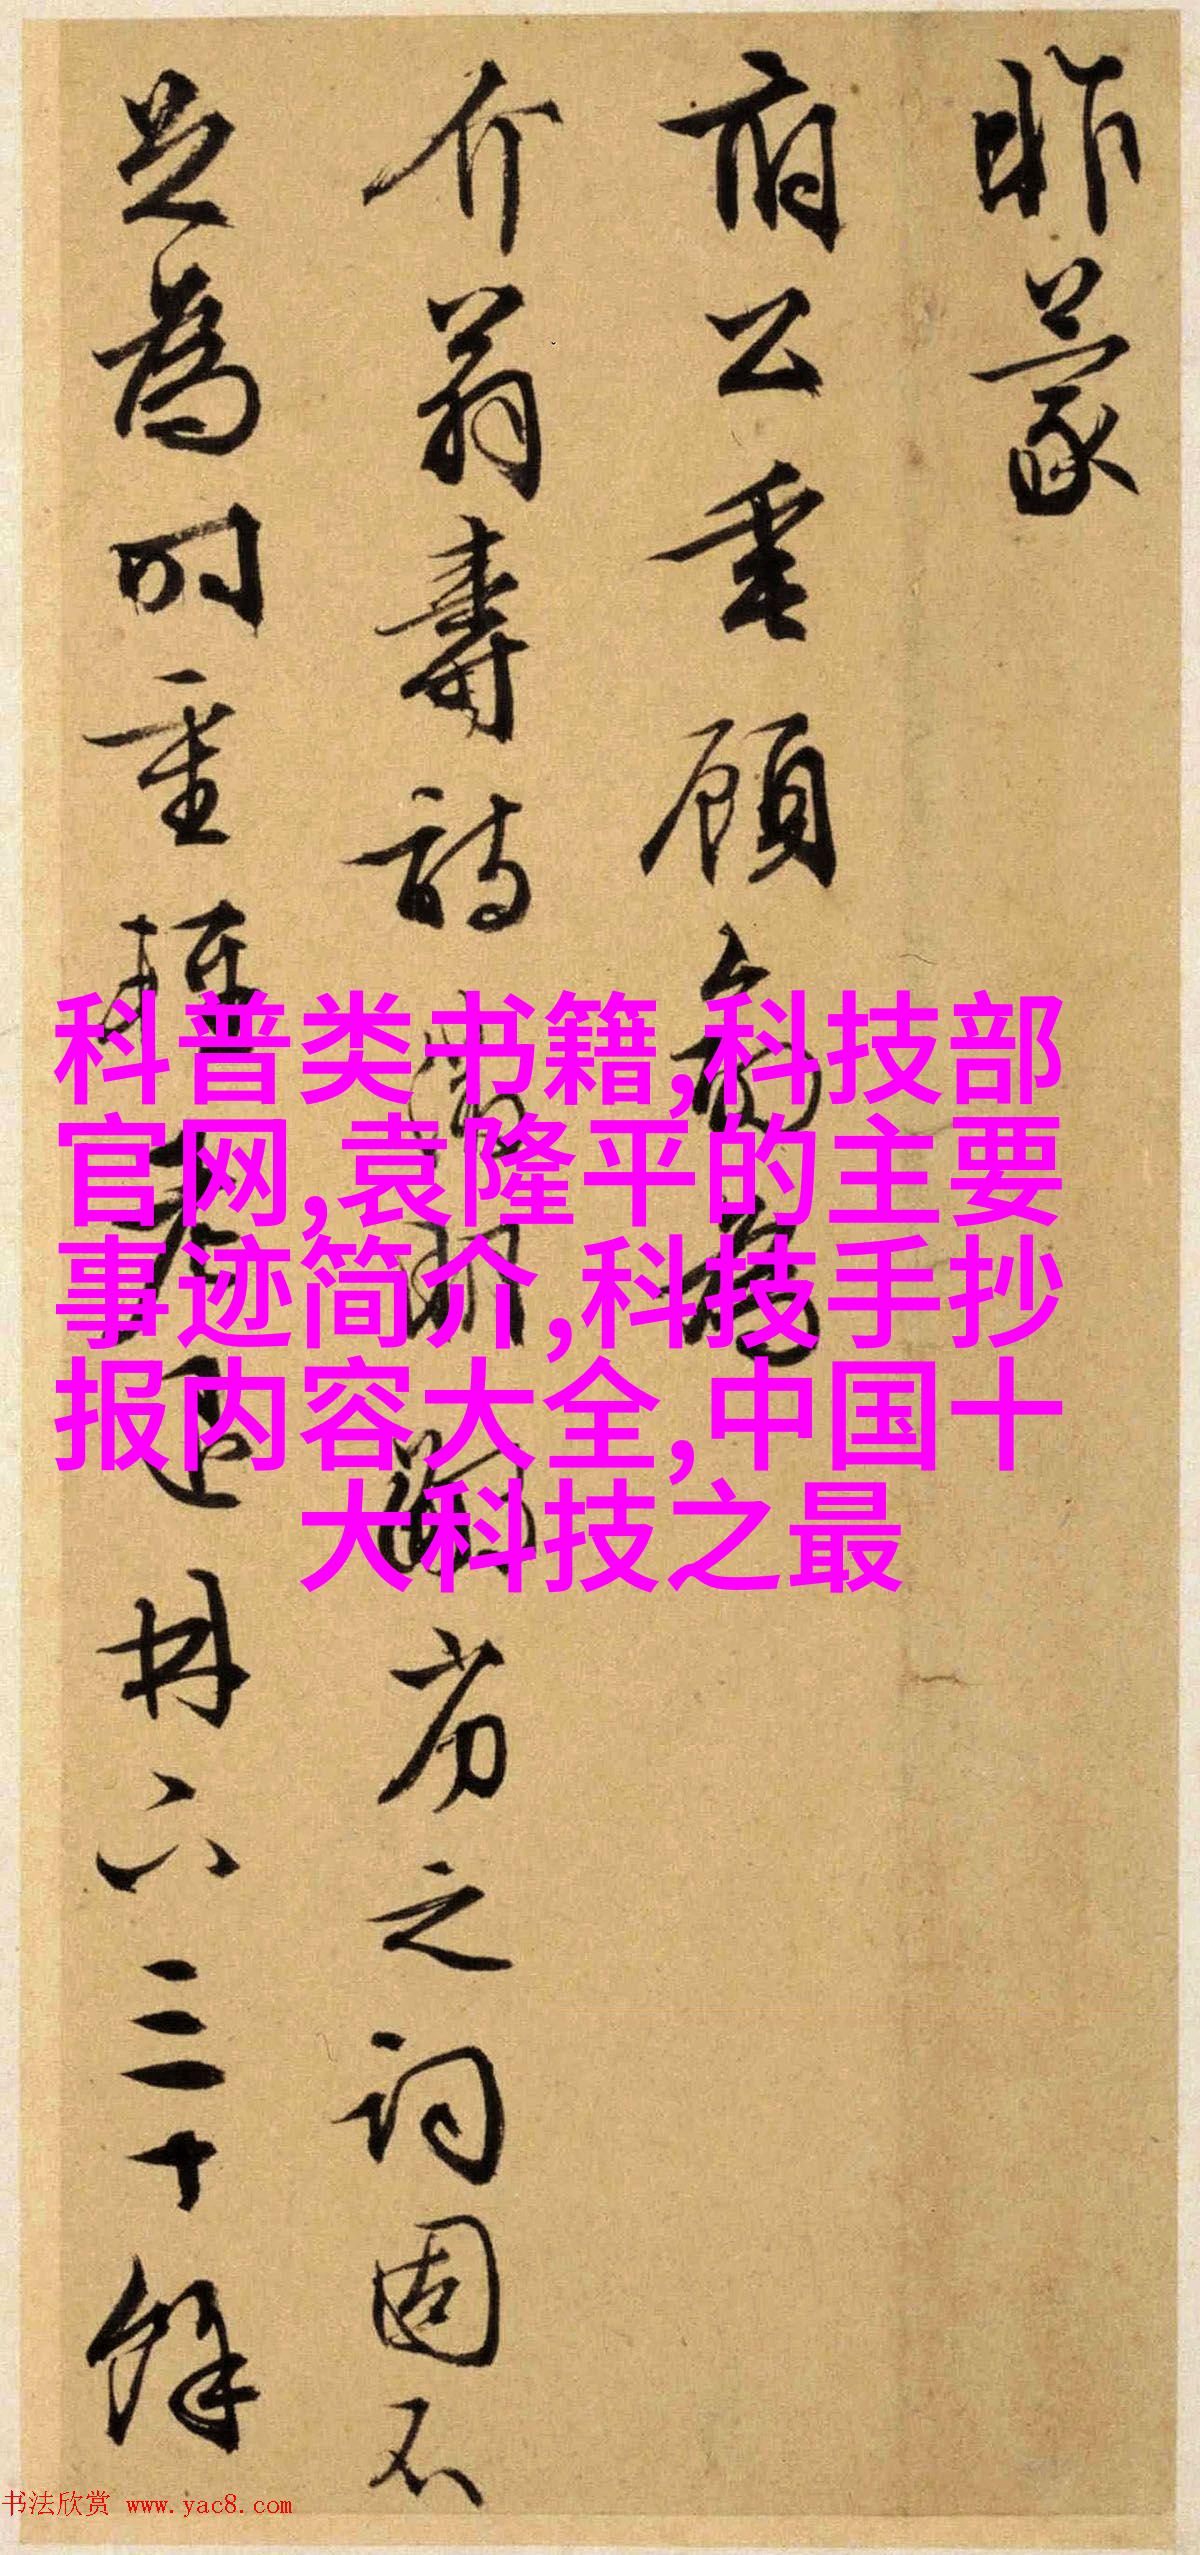 昨蒙
府公垂顧
介翁壽詩
芳之词固不
足為时重
母六三十餘
科普类书籍,科技部
官网,袁隆平的主要
事迹简介,科技手抄
报内容大全,中国十
大科技之最
书法欣赏 www.yac8.com